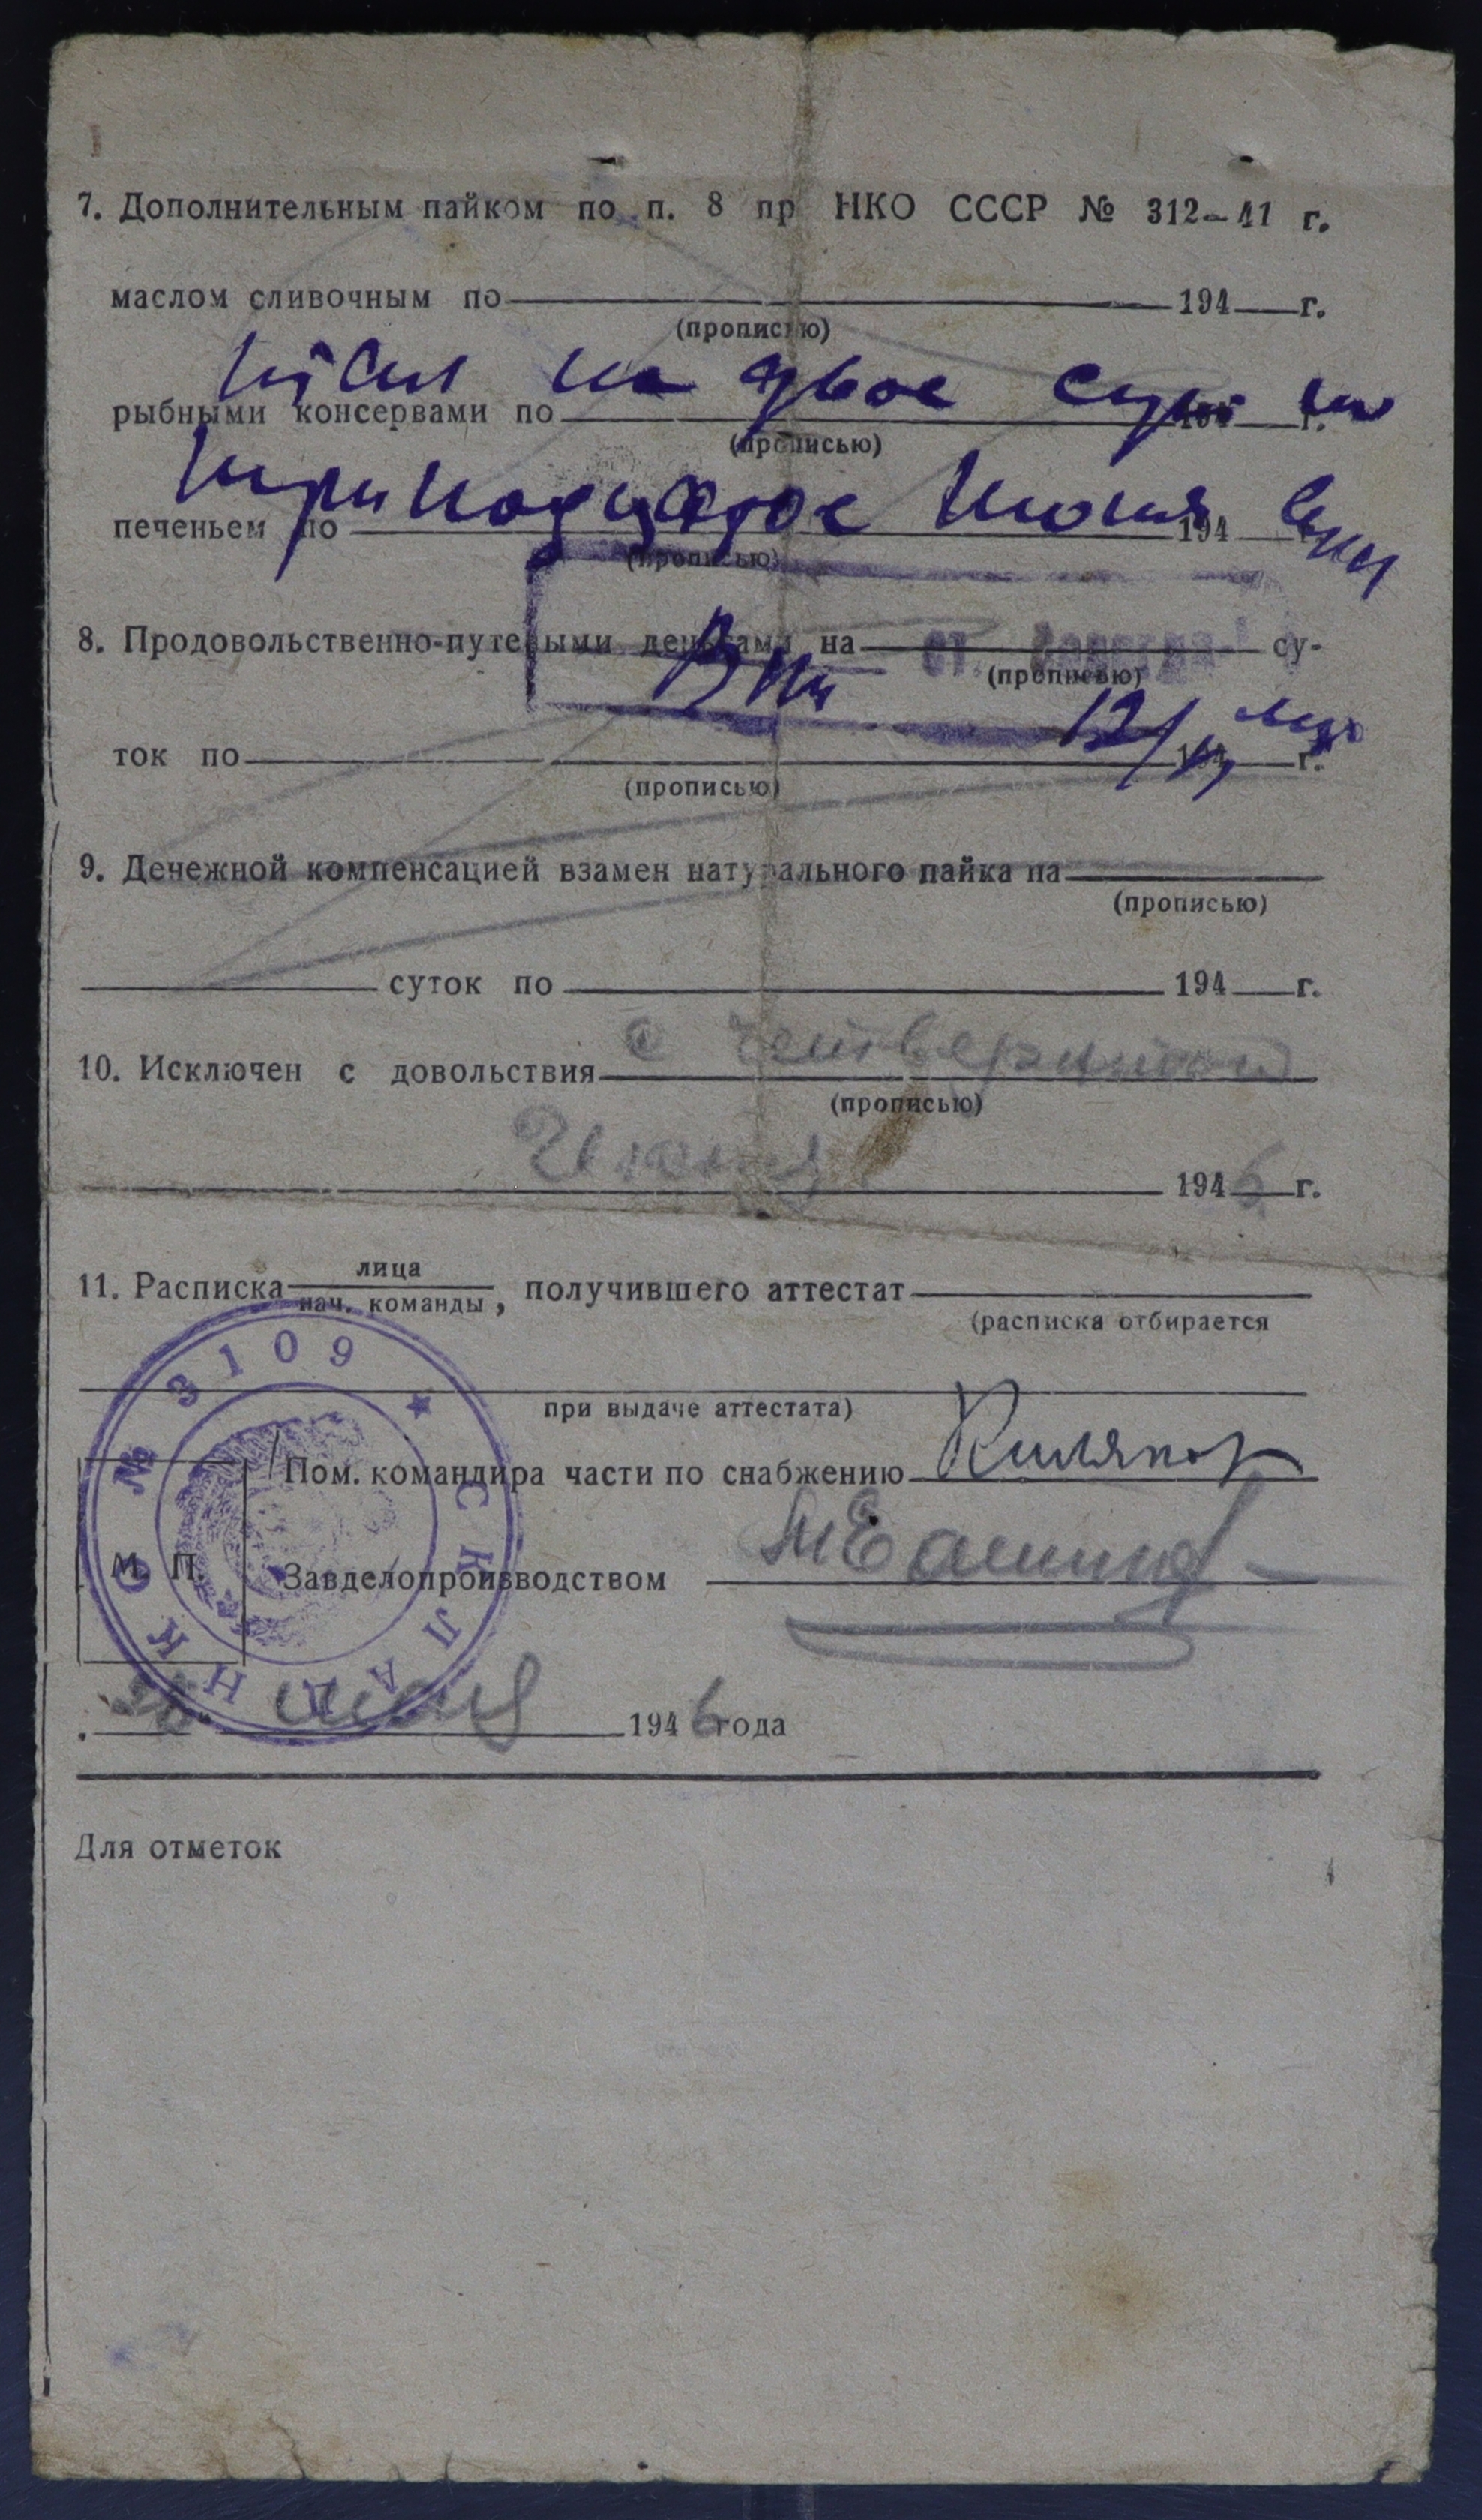 7. Дополнительным пайком по п. 8 пр НКО СССР № 312-41 г.
маслом сливочным по 194 г.
(прописью)
на двое сут по
рыбными консервами по г.
(прописью)
тринадцатое июня
печеньем по 194
(прописью)
8. Продовольственно-путевыми деньгами на су-
ст.
(прописью)
12/VI
ток по 194 г.
(прописью)
9. Денежной компенсацией взамен натурального пайка на
(прописью)
суток по 194 г.
10. Исключен с довольствия с четвертого
(прописью)
Июня 1946 г.
11. Расписка лица
нач. команды, получившего аттестат
(расписка отбирается
при выдаче аттестата)
Пом. командира части по снабжению
М. П.
Завделопроизводством
СКЛАД НКО № 3109
1946 года
Для отметок